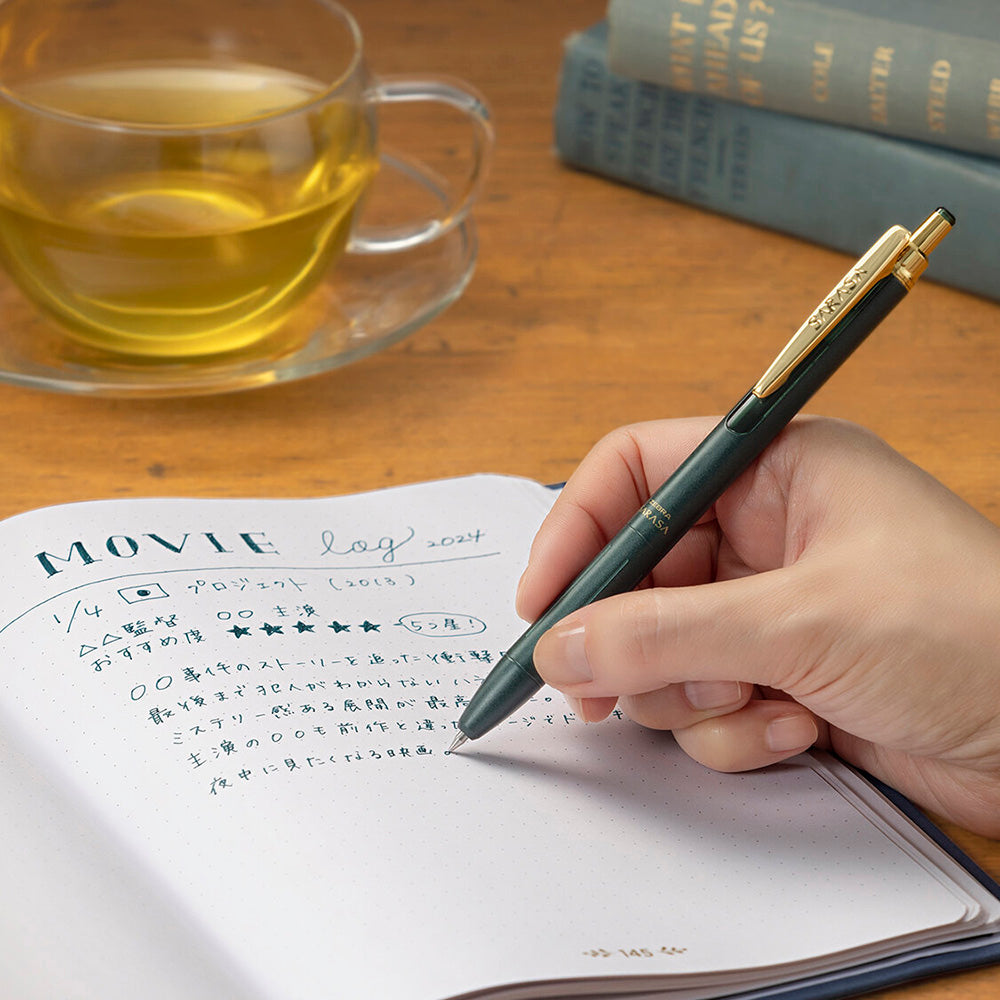 WHAT
AHEAD
OF US?
COLE
BAXTER
STEED
HOW TO
SPEAK
FRENCH
LIKE THE
FRENCH
SARASA
ZEBRA
SARASA
MOVIE log 2024
1/4 プロジェクト (2013)
△△監督 〇〇 主演
おすすめ度 ★★★★★ 5つ星!
〇〇事件のストーリーを追った衝撃
最後まで犯人がわからない
ミステリー感ある展開が最高
主演の〇〇も前作と違った
夜中に見たくなる映画。
145